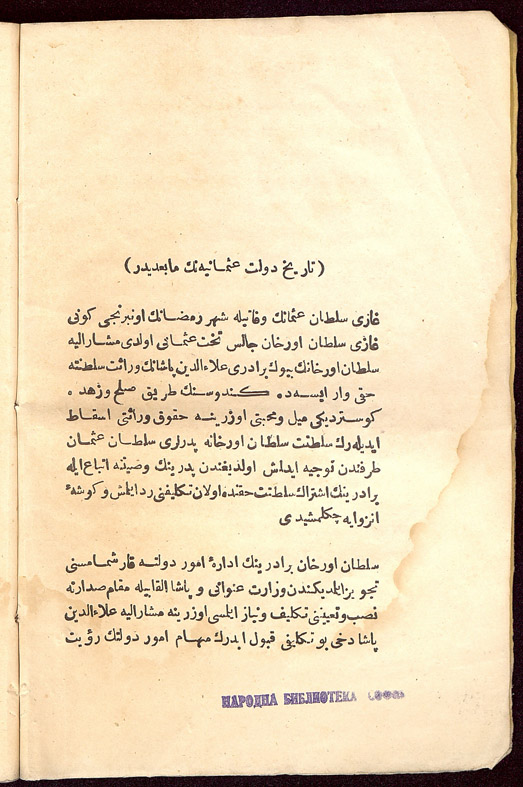 (تاریخ دولت عثمانیه‌نك مابعدیدر)
غازی سلطان عثمانك وفاتیله شهر رمضانك اونبرنجی كونی
غازی سلطان اورخان جالس تخت عثمانی اولدی مشارالیه
سلطان اورخانك بیوك برادری علاءالدین پاشانك وراثت سلطنته
حق وار ایسه‌ده كندوسنك طریق صلح وزهده
كوستردیكی میل ومحبتی اوزرینه حقوق وراثتی اسقاط
ایدیله‌رك سلطنت سلطان اورخانه پدرلری سلطان عثمان
طرفندن توجیه ایدلش اولدیغندن پدرینك وصیتنه اتباع ایله
برادرینك اشتراك سلطنت حقنده اولان تكلیفنی رد ایلش وكوشهٔ
انزوایه چكلمشیدی
سلطان اورخان برادرینك ادارهٔ امور دولته قارشمامسنی
تجویز ایلدیكندن وزارت عنوانی و پاشا القابیله مقام صدارته
نصب وتعیینی تكلیف ونیاز ایلمسی اوزرینه مشارالیه علاءالدین
پاشا دخی بو تكلیفی قبول ایدرك مهام امور دولتك رؤیت
НАРОДНА БИБЛИОТЕКА